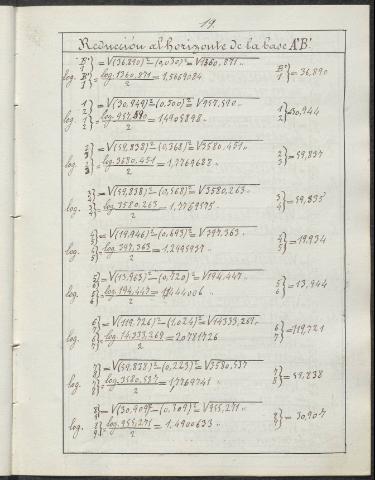 19.
Reducción al horizonte de la base A'B'
B'/1} = √(36,890)² – (0,030)² = √1360,871 ..
log. B'/1} = log. 1360,871/2 = 1,5669084 B'/1} = 36,890
1/2} = √(30,949)² – (0,300)² = √957,590 ..
log. 1/2} = log. 957,590/2 = 1,4905898 .. 1/2} = 30,944
2/3} = √(59,838)² – (0,368)² = √3580,451 ..
log. 2/3} = log. 3580,451/2 = 1,7769688 .. 2/3} = 59,837
3/4} = √(59,838)² – (0,568)² = √3580,263 ..
log. 3/4} = log. 3580,263/2 = 1,7769575 .. 3/4} = 59,835
4/5} = √(19,946)² – (0,693)² = √397,363 ..
log. 4/5} = log. 397,363/2 = 4/5} = 19,934
5/6} = √(13,963)² – (0,720)² = √194,447 ..
log. 5/6} = log. 194,447/2 = 1,1444006 .. 5/6} = 13,944
6/7} = √(119,726)² – (1,024)² = √14333,269 ..
log. 6/7} = log. 14.333,269/2 = 2,0781726 6/7} = 119,721
7/8} = √(59,838)² – (0,223)² = √3580,537
log. 7/8} = log. 3580,537/2 = 1,7769741 .. 7/8} = 59,838
8/9} = √(30,909)² – (0,309)² = √955,271 ..
log. 8/9} = log. 955,271/2 = 1,4900633 .. 8/9} = 30,907